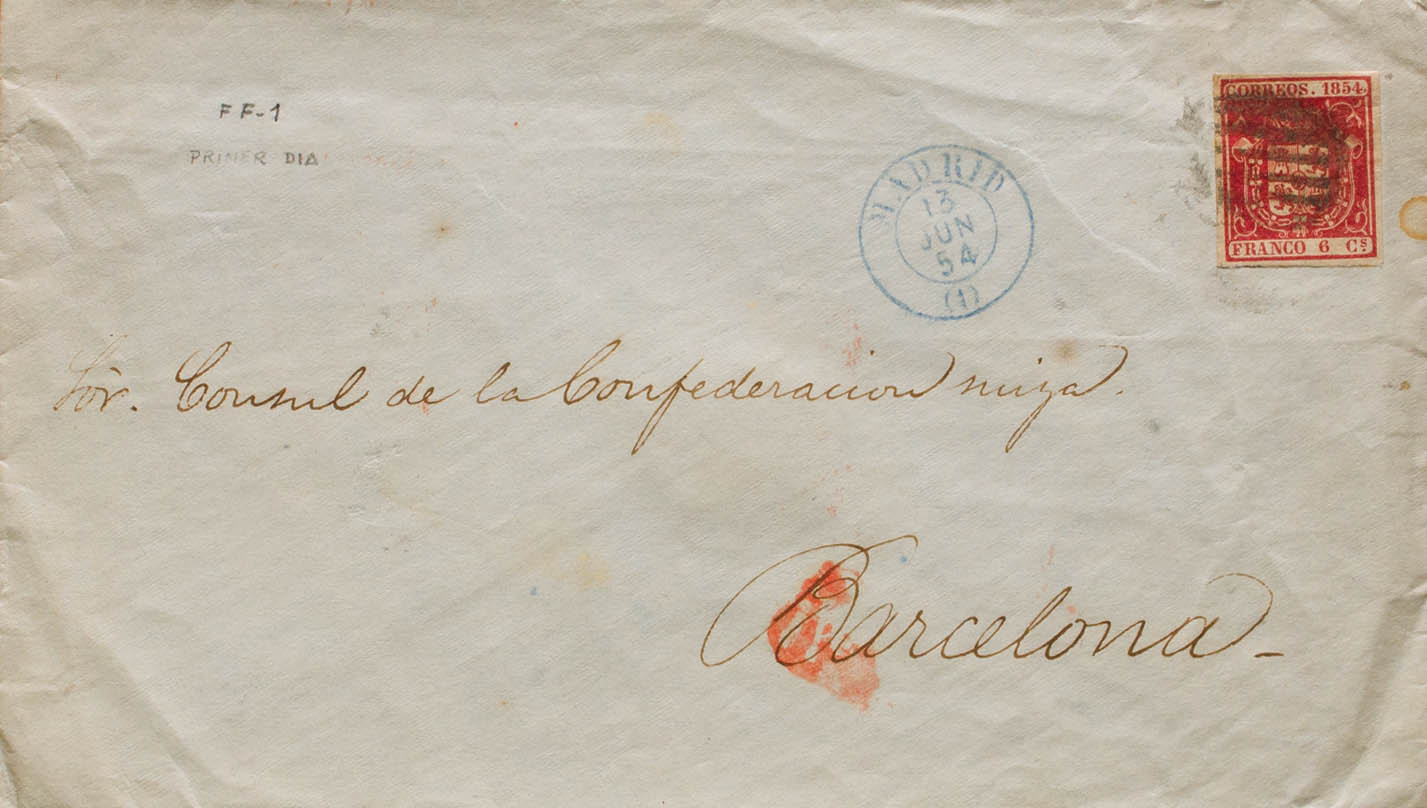 FF-1
PRIMER DIA
CORREOS. 1854.
FRANCO 6 Cs.
MADRID
13
JUN
54
(1)
Sor. Consul de la Confederacion suiza.
Barcelona_